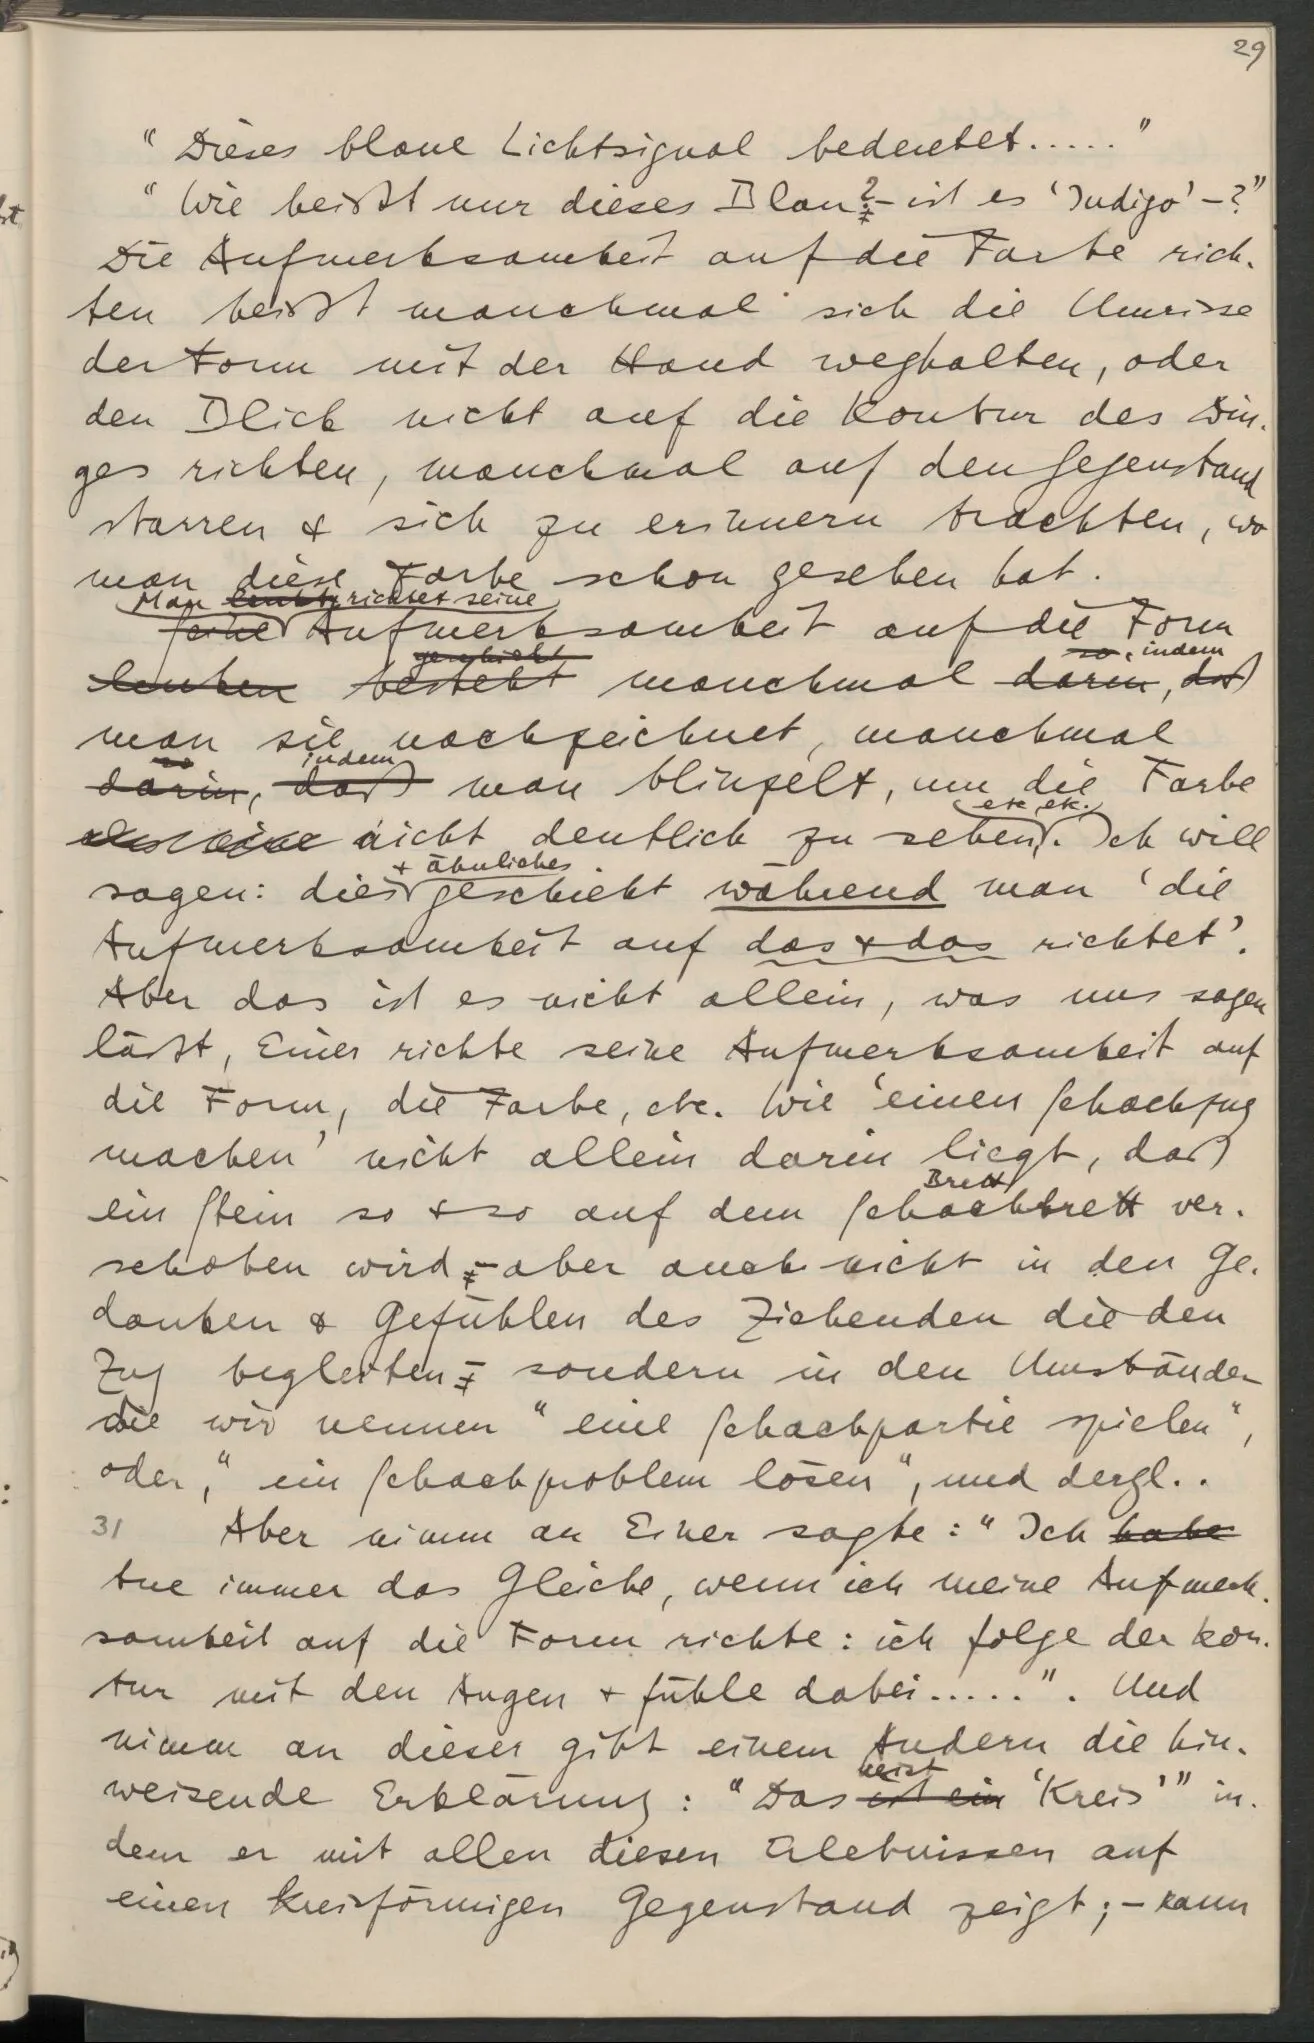 29
“Dieses blaue Lichtsignal bedeutet.....”
“Wie heißt nur dieses Blau? – ist es ‘Indigo’ – ?”
Die Aufmerksamkeit auf die Farbe rich-
ten heißt manchmal sich die Umrisse
der Form mit der Hand weghalten, oder
den Blick nicht auf die Kontur des Din-
ges richten, manchmal auf den Gegenstand
starren & sich zu erinnern trachten, wo
man diese Farbe schon gesehen hat.
Man lenkt richtet seine
seine Aufmerksamkeit auf die Form
geschieht so, indem
lenken besteht manchmal darin, daß
man sie nachzeichnet, manchmal
so indem
darin, daß man blinzelt, um die Farbe
etc. etc.
nicht deutlich zu sehen. Ich will
+ ähnliches
sagen: dies geschieht während man ‘die
Aufmerksamkeit auf das & das richtet’.
Aber das ist es nicht allein, was uns sagen
läßt, Einer richte seine Aufmerksamkeit auf
die Form, die Farbe, etc. Wie ‘einen Schachzug
machen’ nicht allein darin liegt, daß
Brett
ein Stein so & so auf dem Schachbrett ver-
schoben wird – aber auch nicht in den Ge-
danken & Gefühlen des Ziehenden die den
Zug begleiten – sondern in den Umständen
die wir nennen “eine Schachpartie spielen”,
oder, “ein Schachproblem lösen”, und dergl..
31 Aber nimm an Einer sagte: “Ich habe
tue immer das Gleiche, wenn ich meine Aufmerk-
samkeit auf die Form richte: ich folge der Kon-
tur mit den Augen & fühle dabei.....”. Und
nimm an dieser gibt einem Andern die hin-
heißt
weisende Erklärung: “Das ist ein ‘Kreis’” in-
dem er mit allen diesen Erlebnissen auf
einen kreisförmigen Gegenstand zeigt; – kann